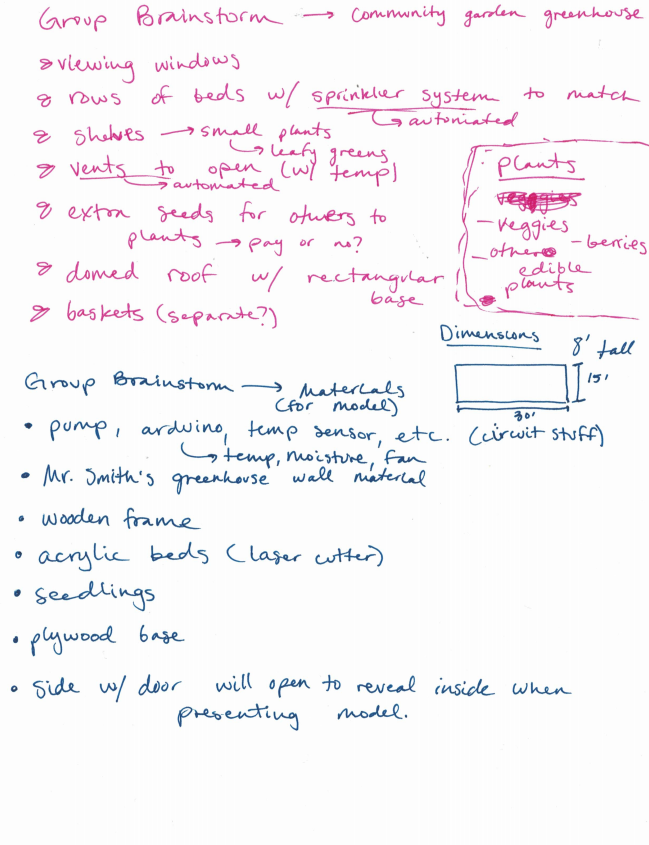 Group Brainstorm → community garden greenhouse
viewing windows
rows of beds w/ sprinkler system to match
↳ automated
shelves → small plants
↳ leafy greens
vents to open (w/ temp)
→ automated
extra seeds for others to
plants → pay or no?
domed roof w/ rectangular
base
baskets (separate?)
plants
- veggies
- other - berries
edible
plants
Dimensions
8' tall
15'
30'
Group Brainstorm → Materials
(for model)
• pump, arduino, temp sensor, etc. (circuit stuff)
↳ temp, moisture, fan
• Mr. Smith's greenhouse wall material
• wooden frame
• acrylic beds (laser cutter)
• seedlings
• plywood base
• side w/ door will open to reveal inside when
presenting model.